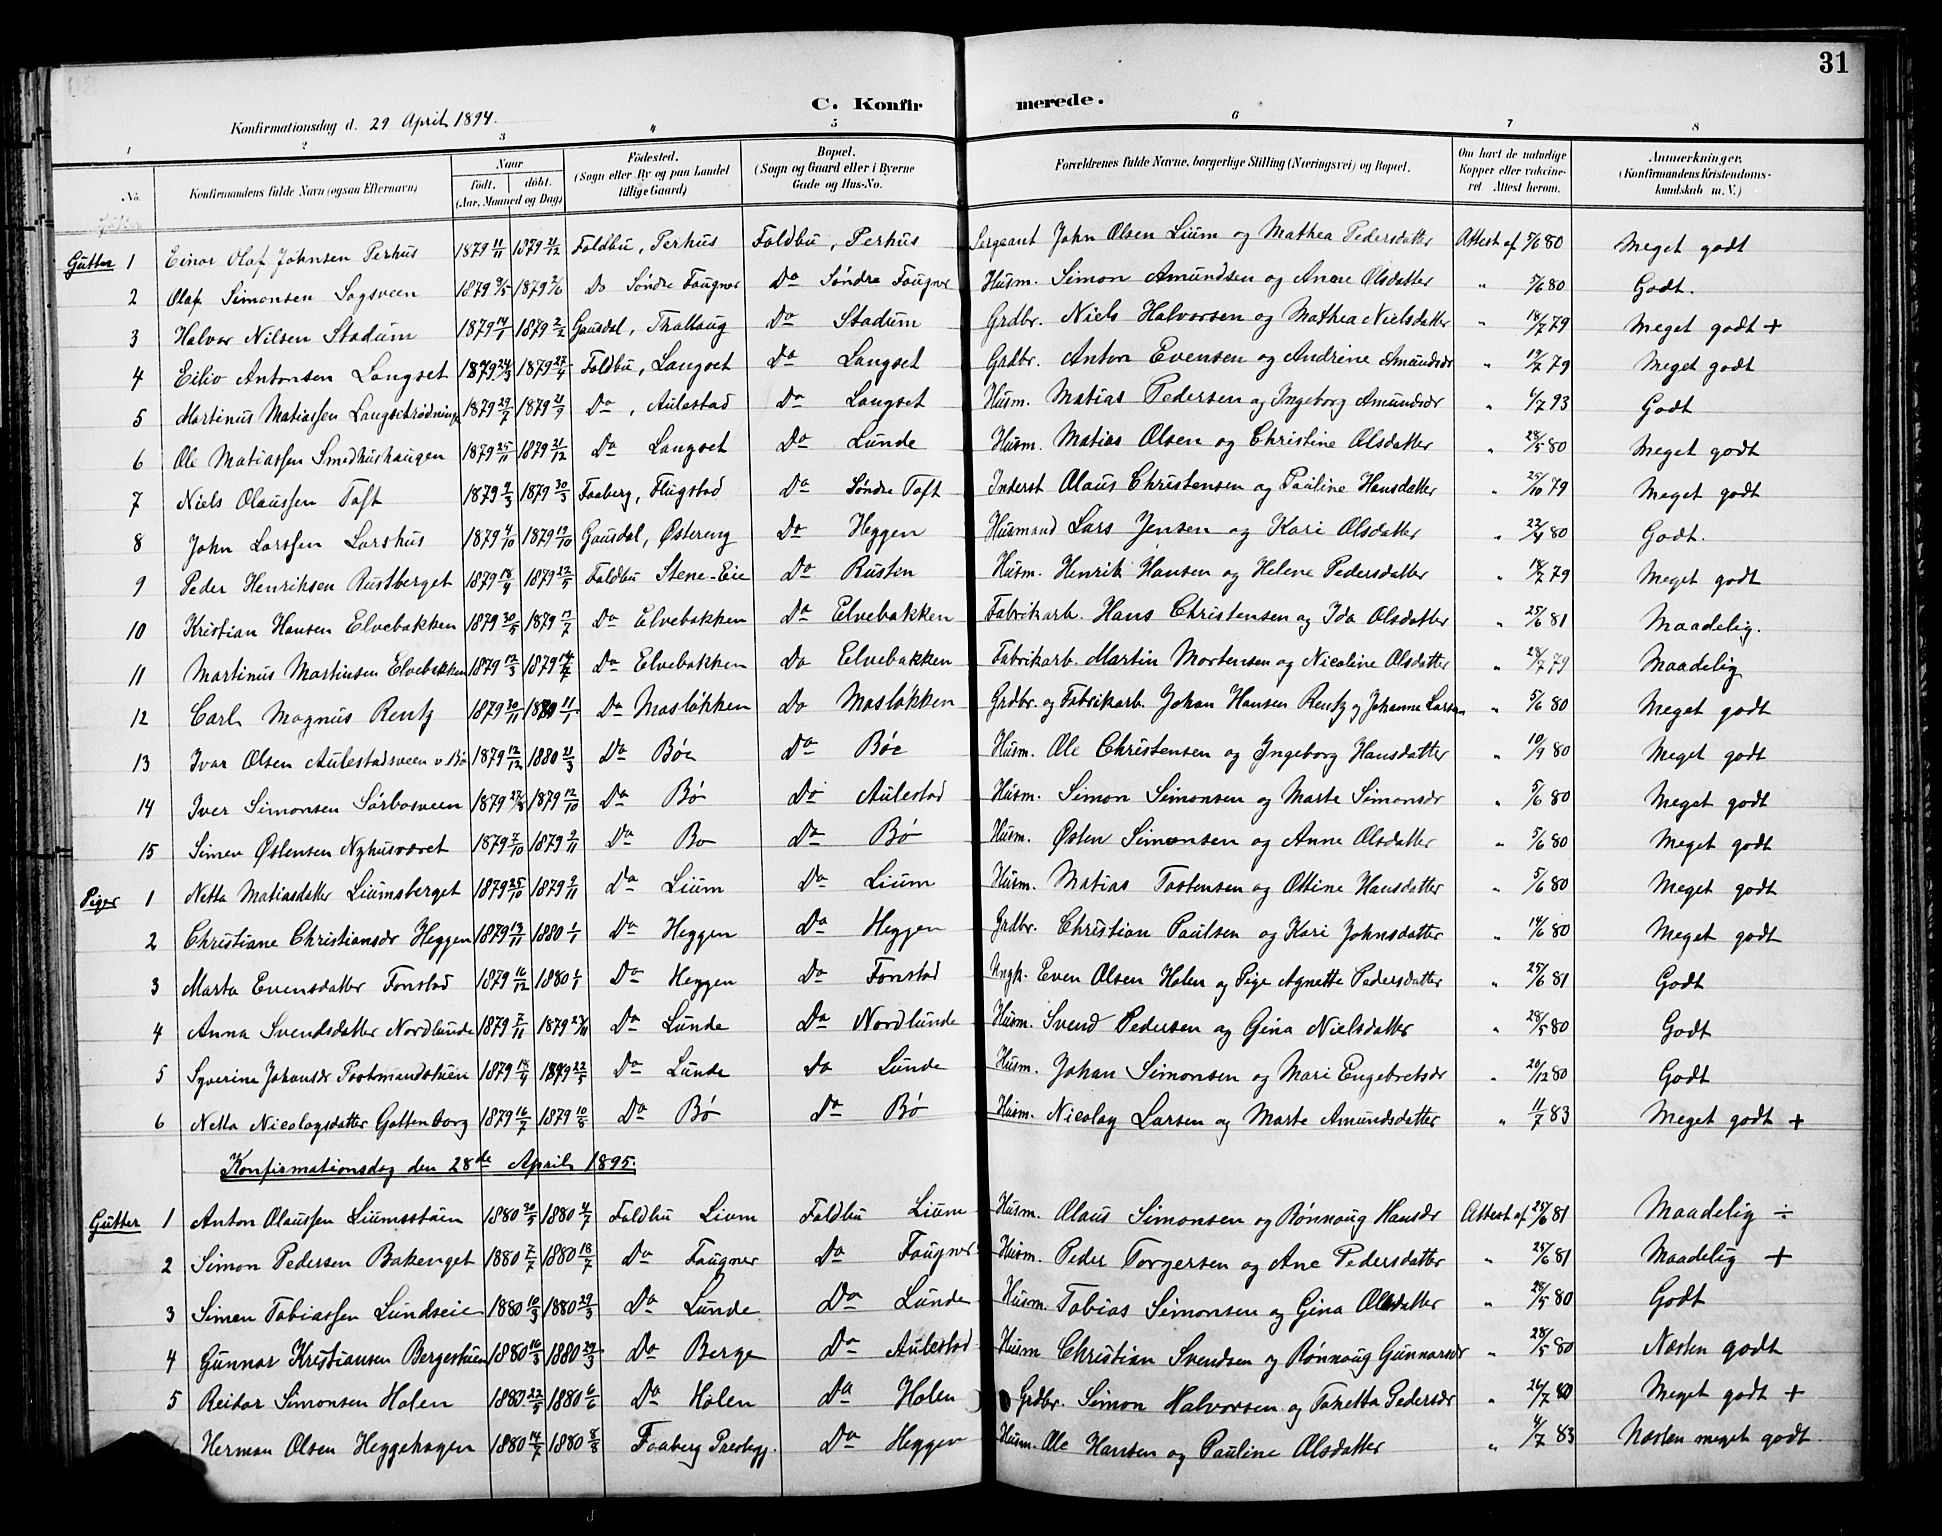 31
C. Konfirmerede.
Konfirmationsdag d. 29 April 1894.
1 2 3 4 5 6 7 8
No. Konfirmandens fulde Navn (ogsaa Efternavn) Naar født. døbt. (Aar, Maaned og Dag) Fødested. (Sogn eller By og paa Landet tillige Gaard) Bopæl. (Sogn og Gaard eller i Byerne Gade og Hus-No. Forældrenes fulde Navne, borgerlige Stilling (Næringsvei) og Bopæl. Om havt de naturlige Kopper eller vakcineret Attest herom. Anmærkninger, (Konfirmandens Kristendomskundskab m. V.)
Gutter 1 Einar Olaf Johnsen Perhus 1879 11/11 1879 21/12 Foldbu, Perhus Foldbu, Perhus Sergeant John Olsen Lium og Mathea Pedersdatter Attest af 5/6 80 Meget godt
2 Olaf Simonsen Sagsveen 1879 9/5 1879 2/6 Do Søndre Faugner Do Søndre Faugner Husm. Simon Amundsen og Anne Olsdatter " 5/6 80 Godt.
3 Halvor Nilsen Stadum 1879 14/1 1879 2/2 Gausdal, Thallaug Do Stadum Grdbr. Niels Halvorsen og Mathea Nielsdatter " 18/7 79 Meget godt +
4 Eilio Antonsen Langset 1879 24/3 1879 27/4 Foldbu, Langset Do Langset Grdbr. Anton Evensen og Andrine Amundsdr " 19/7 79 Meget godt
5 Martinus Matiassen 1879 29/7 1879 21/9 Do, Aulestad Do Langset Husm. Matias Pedersen og Ingeborg Amundsdr " 4/7 93 Godt
6 Ole Matiassen Smedhushaugen 1879 25/11 1879 21/12 Do Langset Do Lunde Husm. Matias Olsen og Christine Olsdatter " 28/5 80 Meget godt
7 Niels Olaussen Toft 1879 9/3 1879 30/3 Faaberg, Flugstad Do Søndre Toft Inderst Olaus Christensen og Pauline Hansdatter " 25/10 79 Meget godt
8 John Larssen Larshus 1879 4/10 1879 19/10 Gausdal, Østereng Do Heggen Husmand Lars Jensen og Kari Olsdatter " 22/4 80 Godt.
9 Peder Henriksen Rustberget 1879 18/4 1879 22/5 Foldbu Stene-Eie Do Rusten Husm. Henrik Hansen og Helene Pedersdatter " 18/7 79 Meget godt
10 Kristian Hansen Elvebakken 1879 30/5 1879 17/7 Do Elvebakken Do Elvebakken Fabrikarb. Hans Christensen og Ida Olsdatter " 25/6 81 Maadelig.
11 Martinus Martinsen Elvebakken 1879 12/3 1879 14/4 Do Elvebakken Do Elvebakken Fabrikarb. Martin Mortensen og Nicoline Olsdatter " 28/7 79 Maadelig
12 Carl Magnus Rentz 1879 20/11 1880 11/1 Do Masløkken Do Masløkken Grdbr. og Fabrikarb. Johan Hansen Rentz og Johanne Larsen " 5/6 80 Meget godt
13 Ivar Olsen Aulestadsveen v. Bø 1879 12/12 1880 21/3 Do Bøe Do Bøe Husm. Ole Christensen og Ingeborg Hansdatter " 10/9 80 Meget godt
14 Iver Simonsen Sørbosveen 1879 27/8 1879 12/10 Do Bø Do Aulestad Husm. Simon Simonsen og Marte Simonsdr " 5/6 80 Meget godt
15 Simen Østensen Nyhusøret 1879 7/10 1879 9/11 Do Bø Do Bø Husm. Østen Simonsen og Anne Olsdatter " 5/6 80 Meget godt
Piger 1 Netta Matiasdatter Liumsberget 1879 25/10 1879 9/11 Do Lium Do Lium Husm. Matias Tostensen og Ottine Hansdatter " 5/6 80 Meget godt
2 Christiane Christiansdr Heggen 1879 13/11 1880 1/1 Do Heggen Do Heggen Grdbr. Christian Paulsen og Kari Johnsdatter " 14/6 80 Meget godt
3 Marta Evensdatter Fonstad 1879 16/12 1880 1/1 Do Heggen Do Fonstad Ungk. Even Olsen Holen og Pige Agnette Pedersdatter " 25/6 81 Godt
4 Anna Svendsdatter Nordlunde 1879 7/11 1879 Do Lunde Do Nordlunde Husm. Svend Pedersen og Gina Nielsdatter " 28/5 80 Godt
5 Syverine Johansdr 1879 14/4 1879 22/5 Do Lunde Do Lunde Husm. Johan Simonsen og Mari Engebretsdr " 20/12 80 Godt
6 Netta Nicolaysdatter Gottenborg 1879 16/7 1879 10/8 Do Bø Do Bø Husm. Nicolay Larsen og Marte Amundsdatter " 11/7 83 Meget godt +
Konfirmationsdag den 28de April 1895.
Gutter 1 Anton Olaussen Liumsstuen 1880 20/5 1880 4/7 Foldbu Lium Foldbu Lium Husm. Olaus Simonsen og Rønnaug Hansdr Attest af 25/6 81 Maadelig ÷
2 Simon Pedersen Bakenget 1880 7/7 1880 18/7 Do Faugner Do Faugner Husm. Peder Torgersen og Ane Pedersdatter " 25/6 81 Maadelig +
3 Simen Tobiassen Lundseie 1880 10/3 1880 29/3 Do Lunde Do Lunde Husm. Tobias Simonsen og Gina Olsdatter " 28/5 80 Godt
4 Gunnar Kristiansen Bergestuen 1880 16/3 1880 29/3 Do Berge Do Aulestad Husm Christian Svendsen og Rønnaug Gunnarsdr " 28/5 80 Næsten godt
5 Reidar Simonsen Holen 1880 22/5 1880 6/6 Do Holen Do Holen Grdbr. Simon Halvorsen og Taretta Pedersdr " 26/7 80 Meget godt +
6 Herman Olsen Heggehagen 1880 14/7 1880 8/8 Faaberg Prestegj. Do Heggen Husm. Ole Hansen og Pauline Olsdatter " 4/7 83 Næsten meget godt